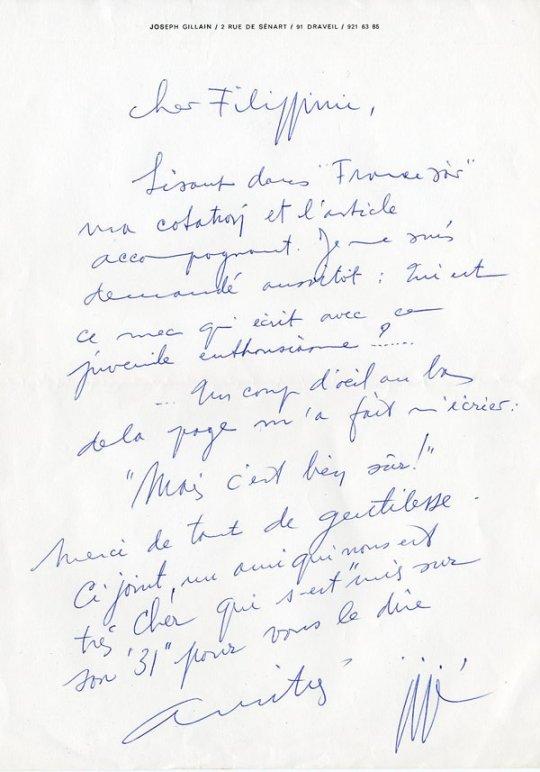 JOSEPH GILLAIN / 2 RUE DE SÉNART / 91 DRAVEIL / 921 63 85
Cher Filippini,
Lisant dans "France soir"
ma cotation et l'article
accompagnant. Je me suis
demandé aussitôt : Qui est
ce mec qui écrit avec ce
juvénile enthousiasme ? ......
... Un coup d'oeil au bas
de la page m'a fait m'écrier :
"Mais c'est bien sûr !"
Merci de tant de gentillesse.
Ci joint, un ami qui nous est
très cher qui s'est "mis sur
son 31" pour vous le dire
Amitiés jijé